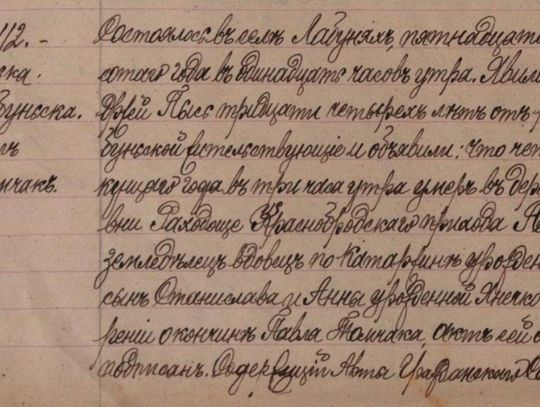 112. -
Состоялось въ селѣ Лабуняхъ, пятнадцата
ска.
сотаго года въ одинадцать часовъ утра. Явили
буньска.
држей Пысь тридцати четырехъ лѣтъ отъ
буньской жительствующіе и объявили: что чет
нчакъ.
кущаго года въ три часа утра умеръ въ дере
вни Раходоще Краснобродскаго прихода
земледѣлецъ вдовецъ по Катаржинѣ урожден
сынъ Станислава и Анны урожденной Янечко
реніи о кончинѣ Павла Томчака, актъ сей
подписанъ. Содержащій Акты Гражданскаго Со